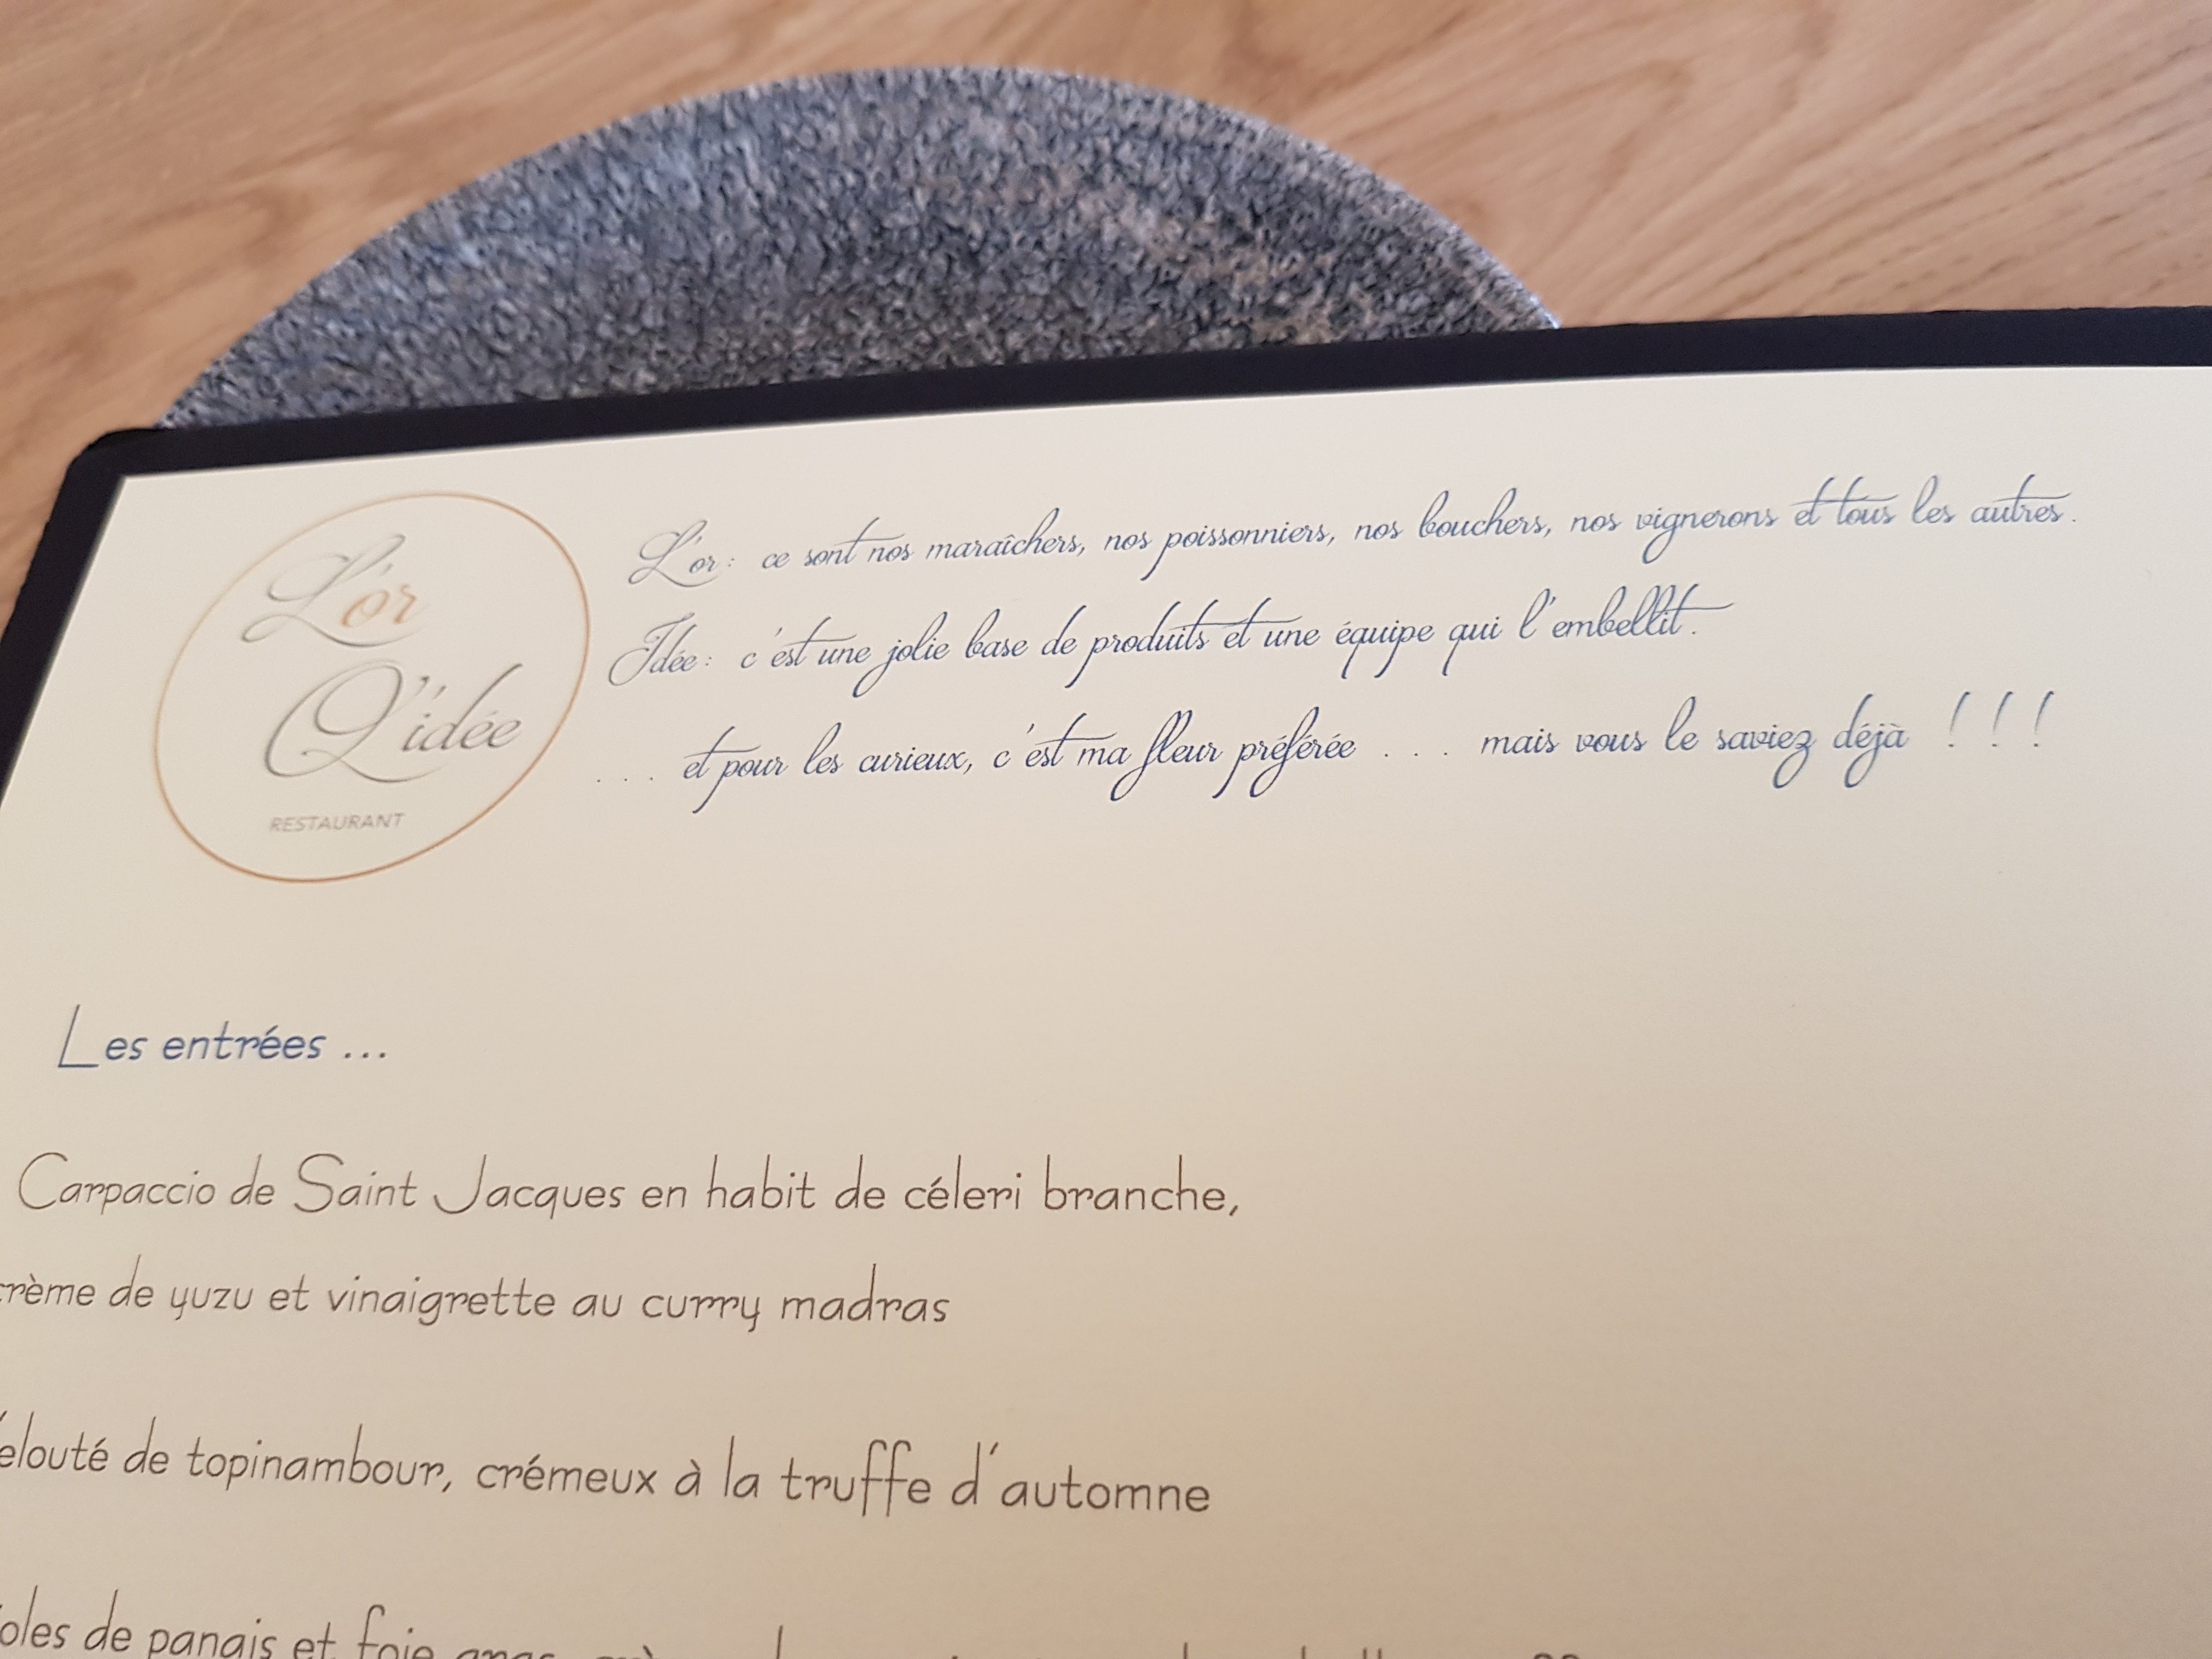 L'or
Q'idée
RESTAURANT
L'or : ce sont nos maraîchers, nos poissonniers, nos bouchers, nos vignerons et tous les autres.
Idée : c'est une jolie base de produits et une équipe qui l'embellit.
... et pour les curieux, c'est ma fleur préférée ... mais vous le saviez déjà !!!
Les entrées ...
Carpaccio de Saint Jacques en habit de céleri branche,
crème de yuzu et vinaigrette au curry madras
elouté de topinambour, crémeux à la truffe d'automne
oles de panais et foie gras,